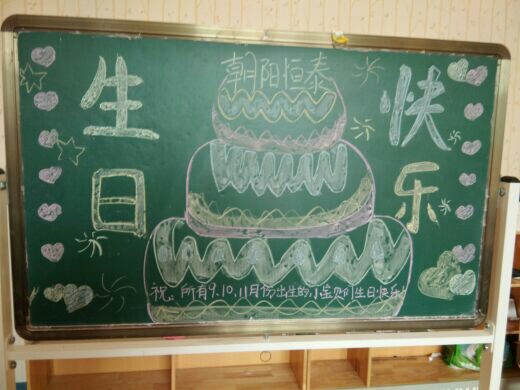 朝阳恒泰
生日
快乐
祝:所有9.10.11月份出生的小宝贝们生日快乐!